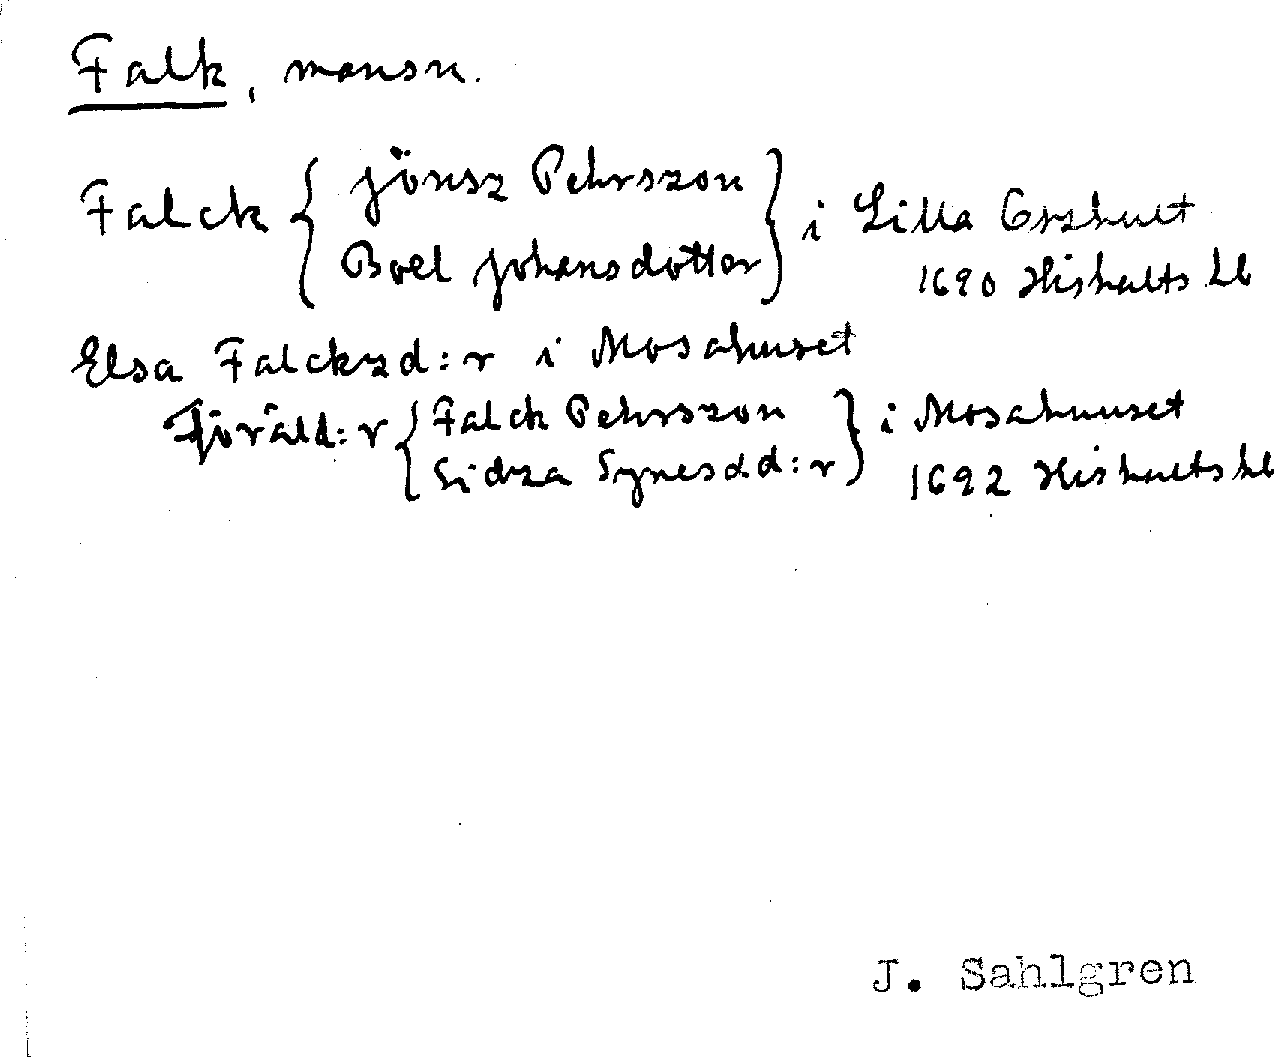 Falk, mansn.
Falck { Jönsz Pehrszon } i Lilla Orshult
Boel Johansdotter 1690 Hishults kb
Elsa Falckzd:r i Mosahuset
Föräld:r { Falck Pehrszon } i Mosahuuset
Sidza Synesdd:r 1692 Hishults kb
J. Sahlgren